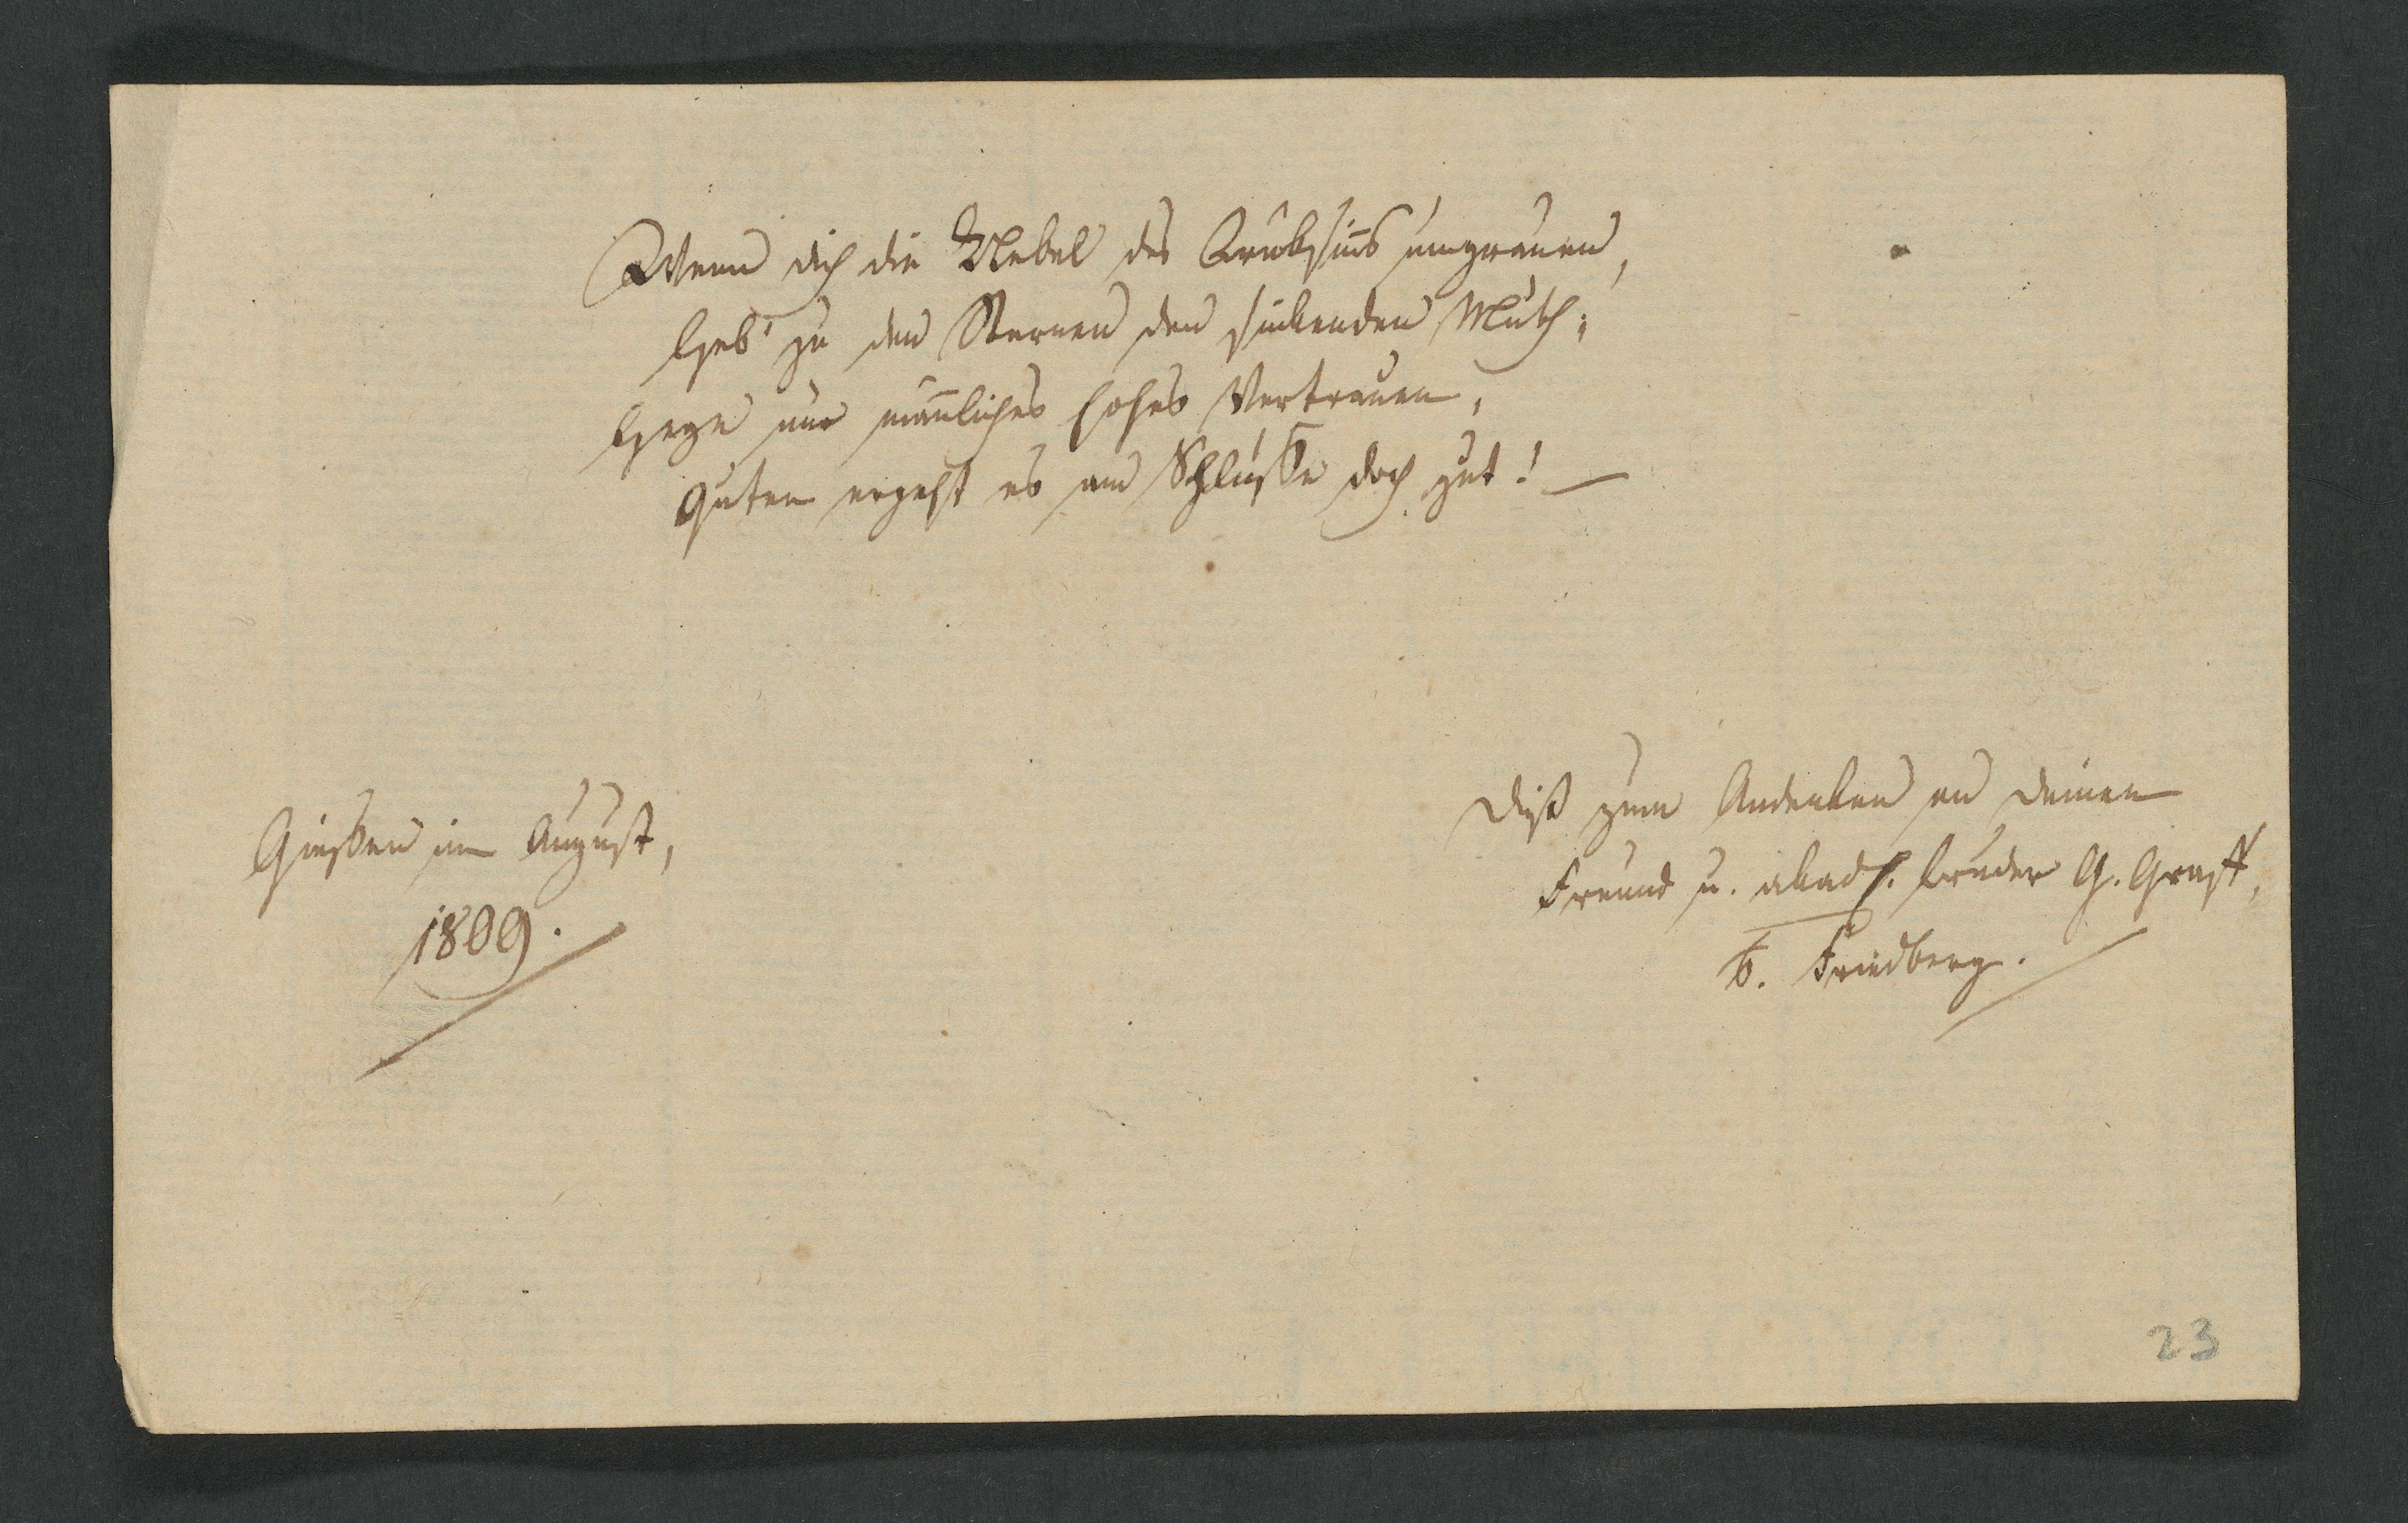 Wenn dich die Nebel des Trübsinns umgrauen,
Heb' zu den Sternen den sinkenden Muth;
Hege nur mañliches hohes Vertrauen,
Guten ergeht es am Schlusse doch gut! —
Giessen im August,
1809.
Diß zum Andenken an deinen
Freund u. akad. Bruder G. Graff,
Friedberg.
23